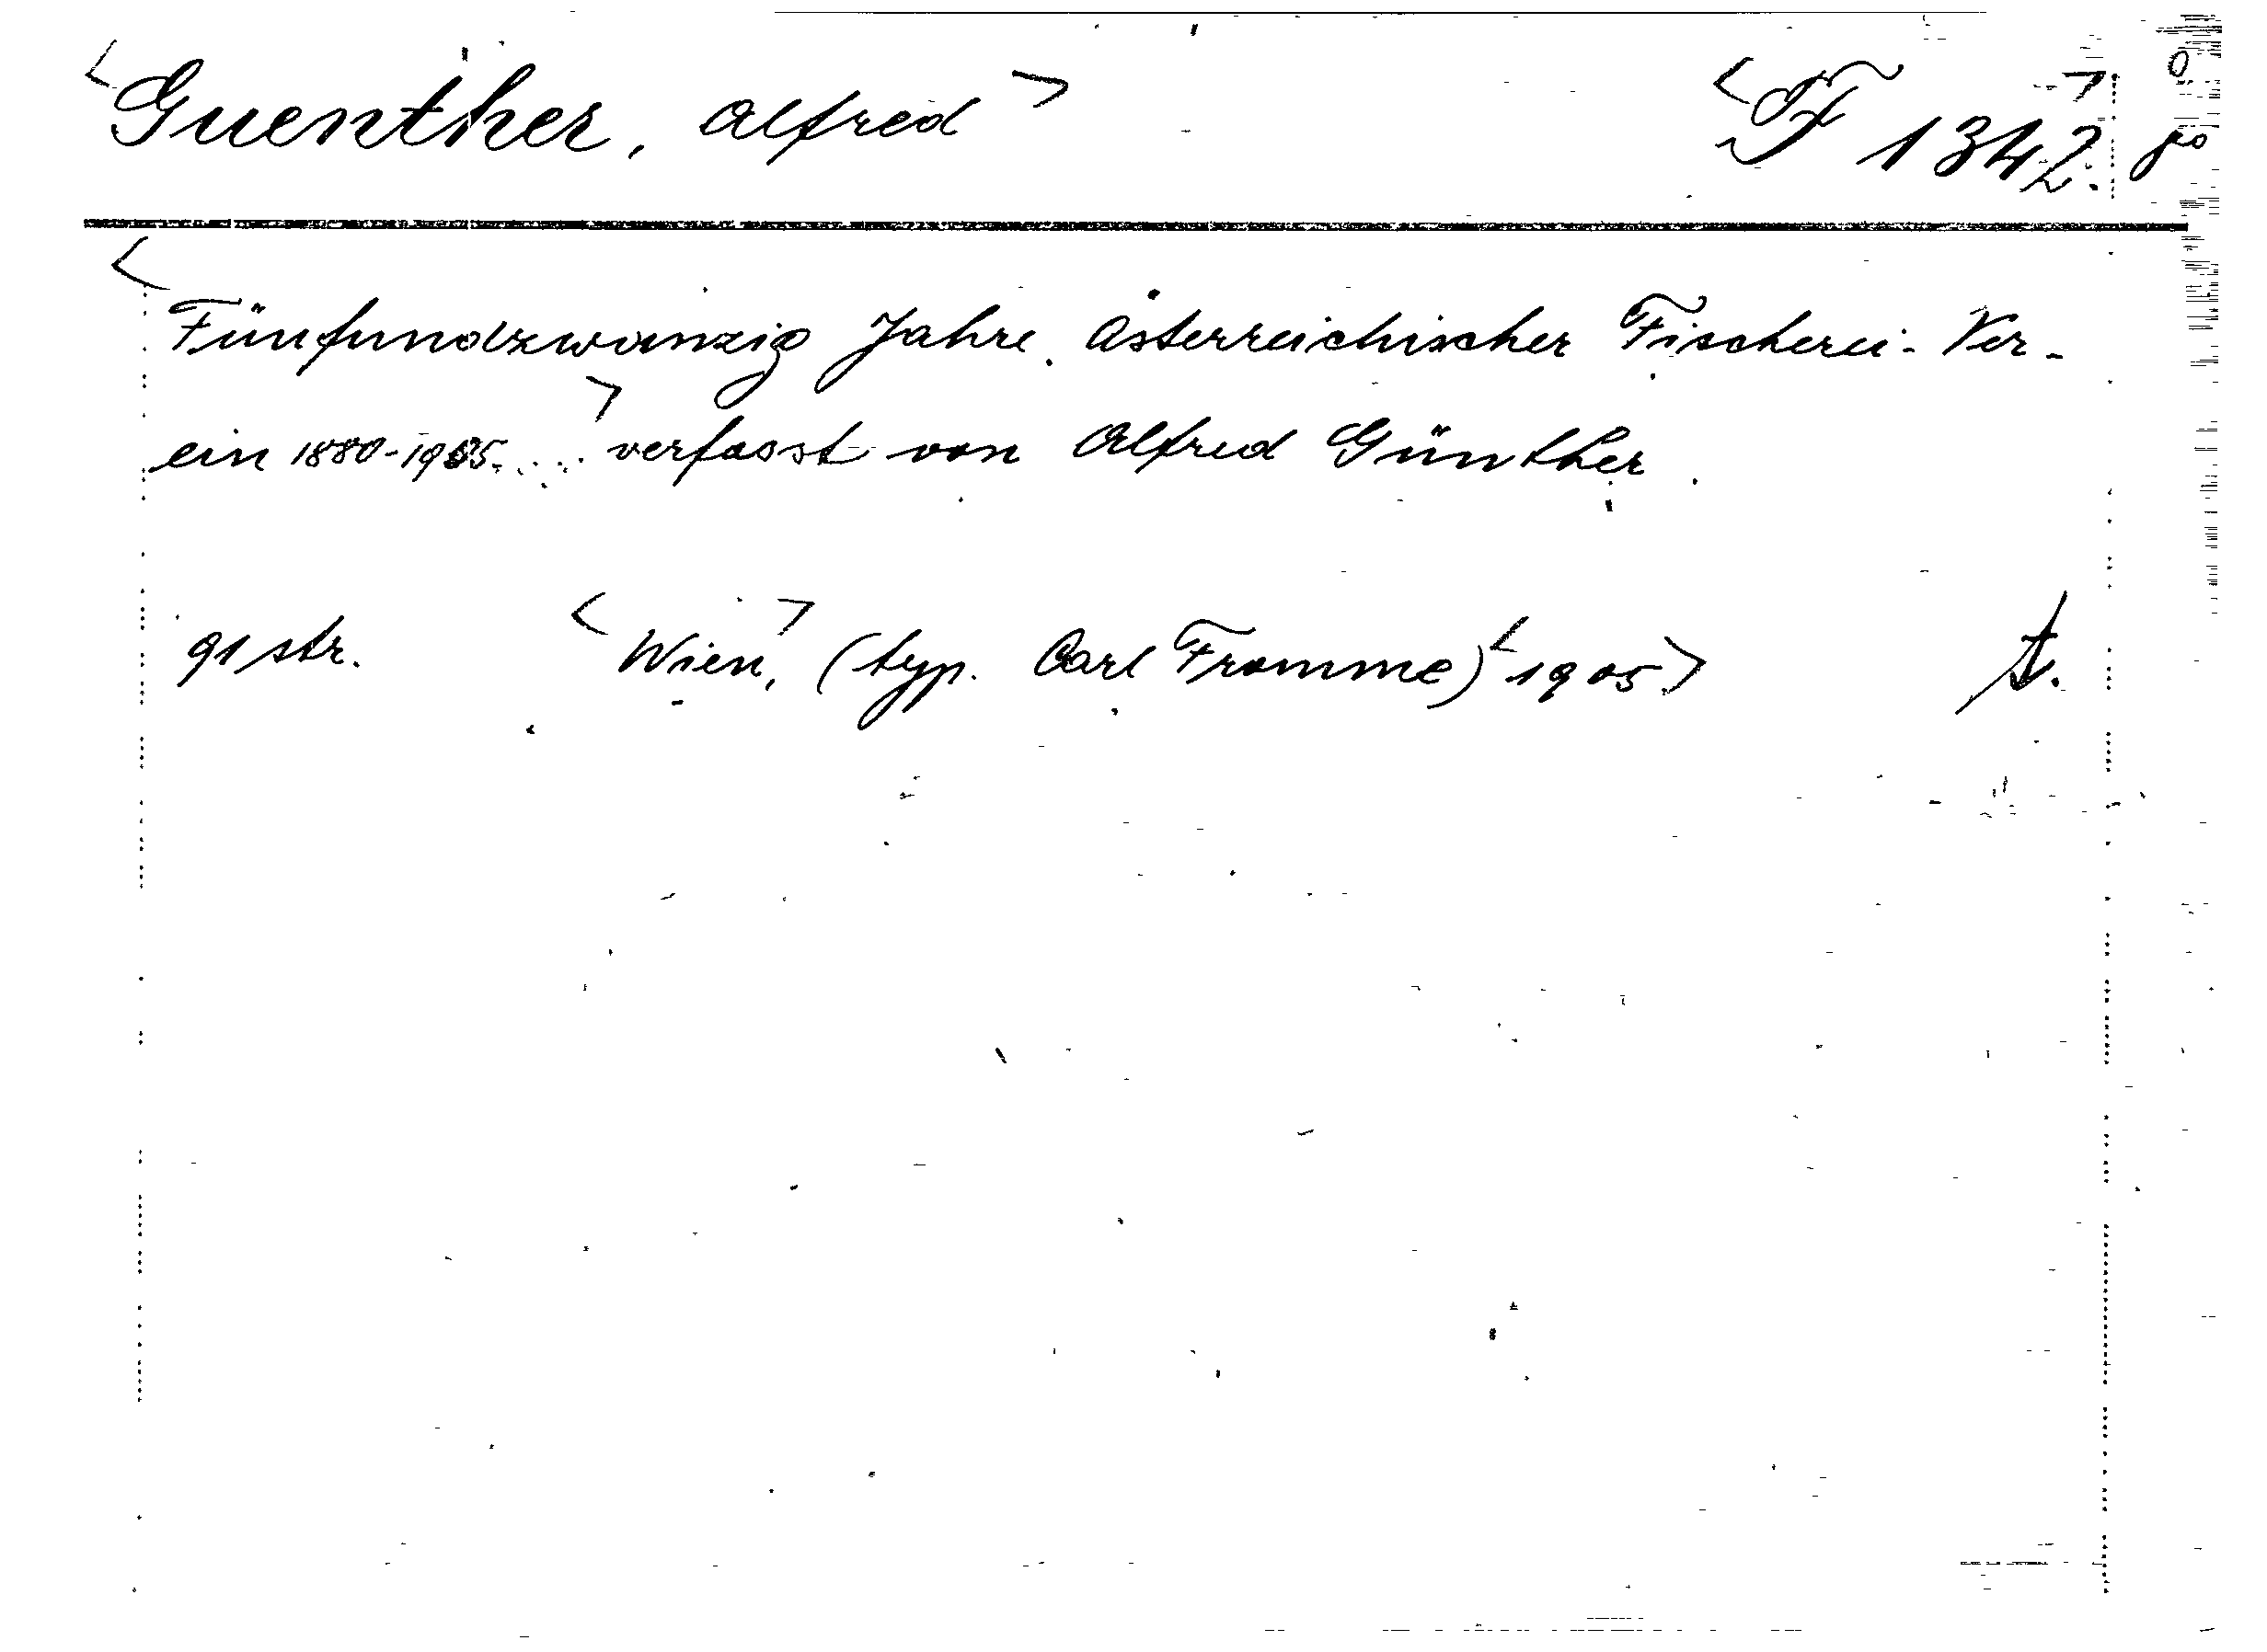 <Guenther, Alfred> <F 1342.>
<Fünfundzwanzig Jahre. Österreichischer Fischerei-Ver-
ein 1880-1905. ...> verfasst von Alfred Günther.
91 str. <Wien,> (typ. Carl Fromme) <1905.> t.